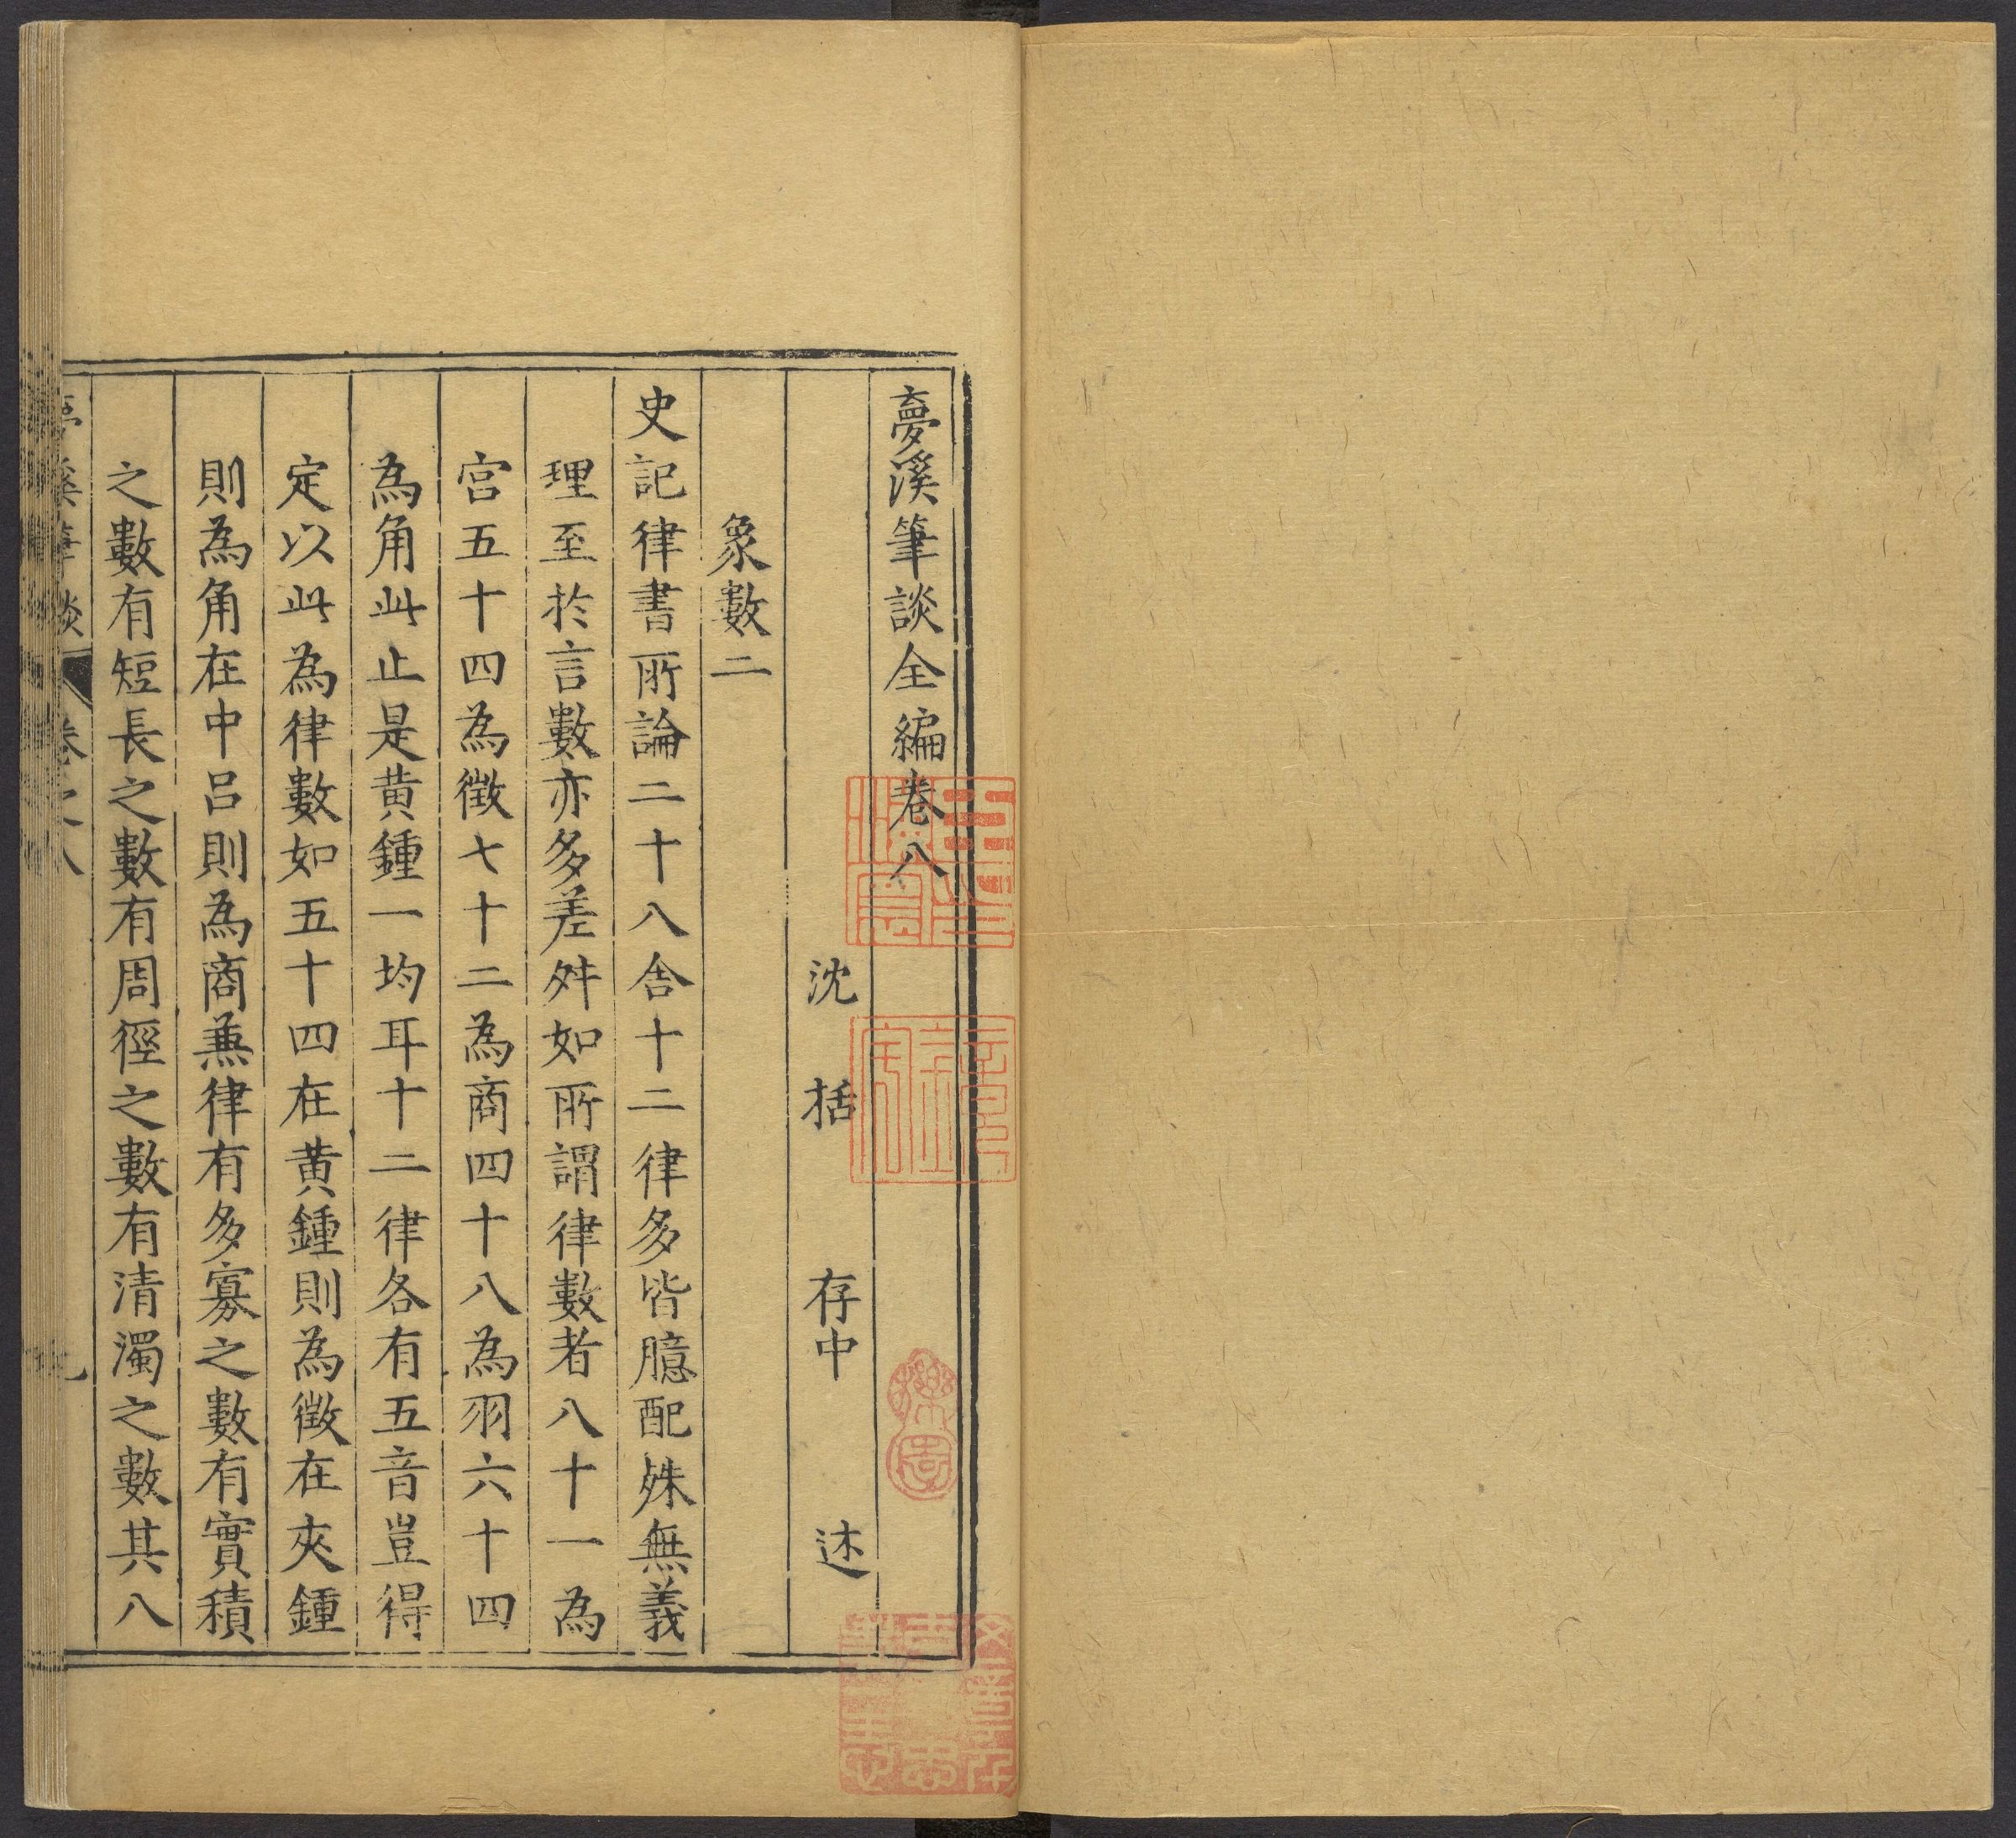 夢溪筆談全編卷八
沈括存中述
象數二
史記律書所論二十八舎十二律多皆臆配殊無義
理至於言數亦多差舛如所謂律數者八十一為
宫五十四為徵七十二為商四十八為羽六十四
為角此止是黄鍾一均耳十二律各有五音豈得
定以此為律數如五十四在黄鍾則為徵在夾鍾
則為角在中呂則為商兼律有多寡之數有實積
之數有短長之數有周徑之數有清濁之數其八
夢溪筆談 卷之八